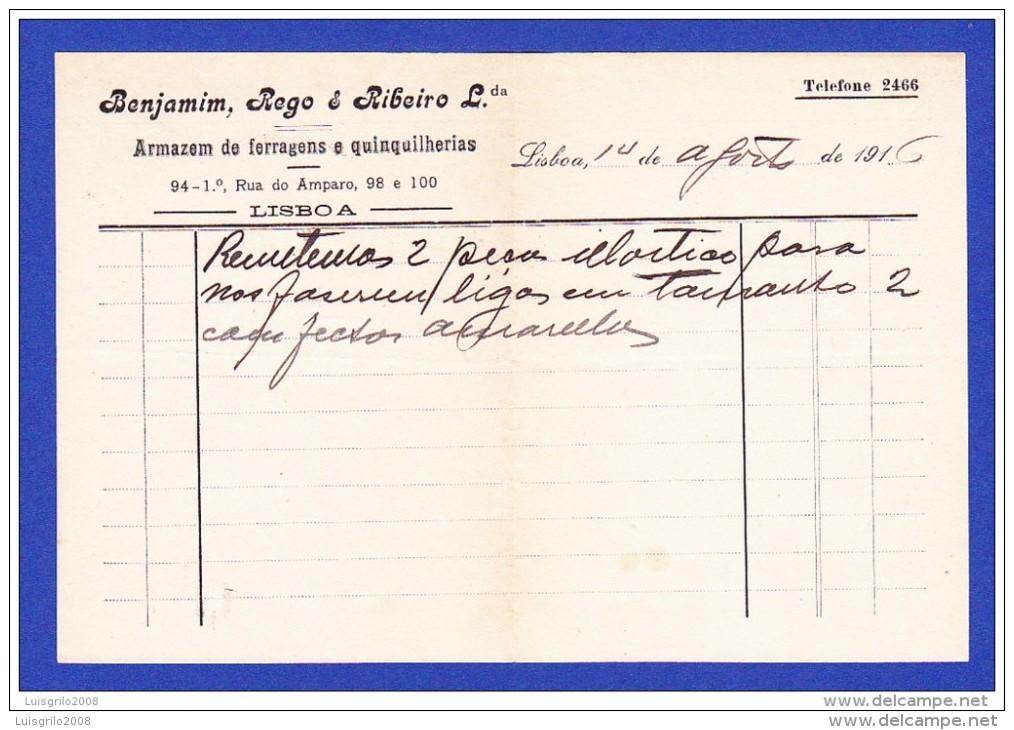 Benjamim, Rego & Ribeiro L.da
Telefone 2466
Armazem de ferragens e quinquilherias
Lisboa, 14 de Agosto de 1916
94-1.º, Rua do Amparo, 98 e 100
LISBOA
Remetemos 2 peças illastico para
nos faserem ligas em tamanho 2
com fechos amarellos
Luisgrilo2008
Luisgrilo2008
www.delcampe.net
www.delcampe.net